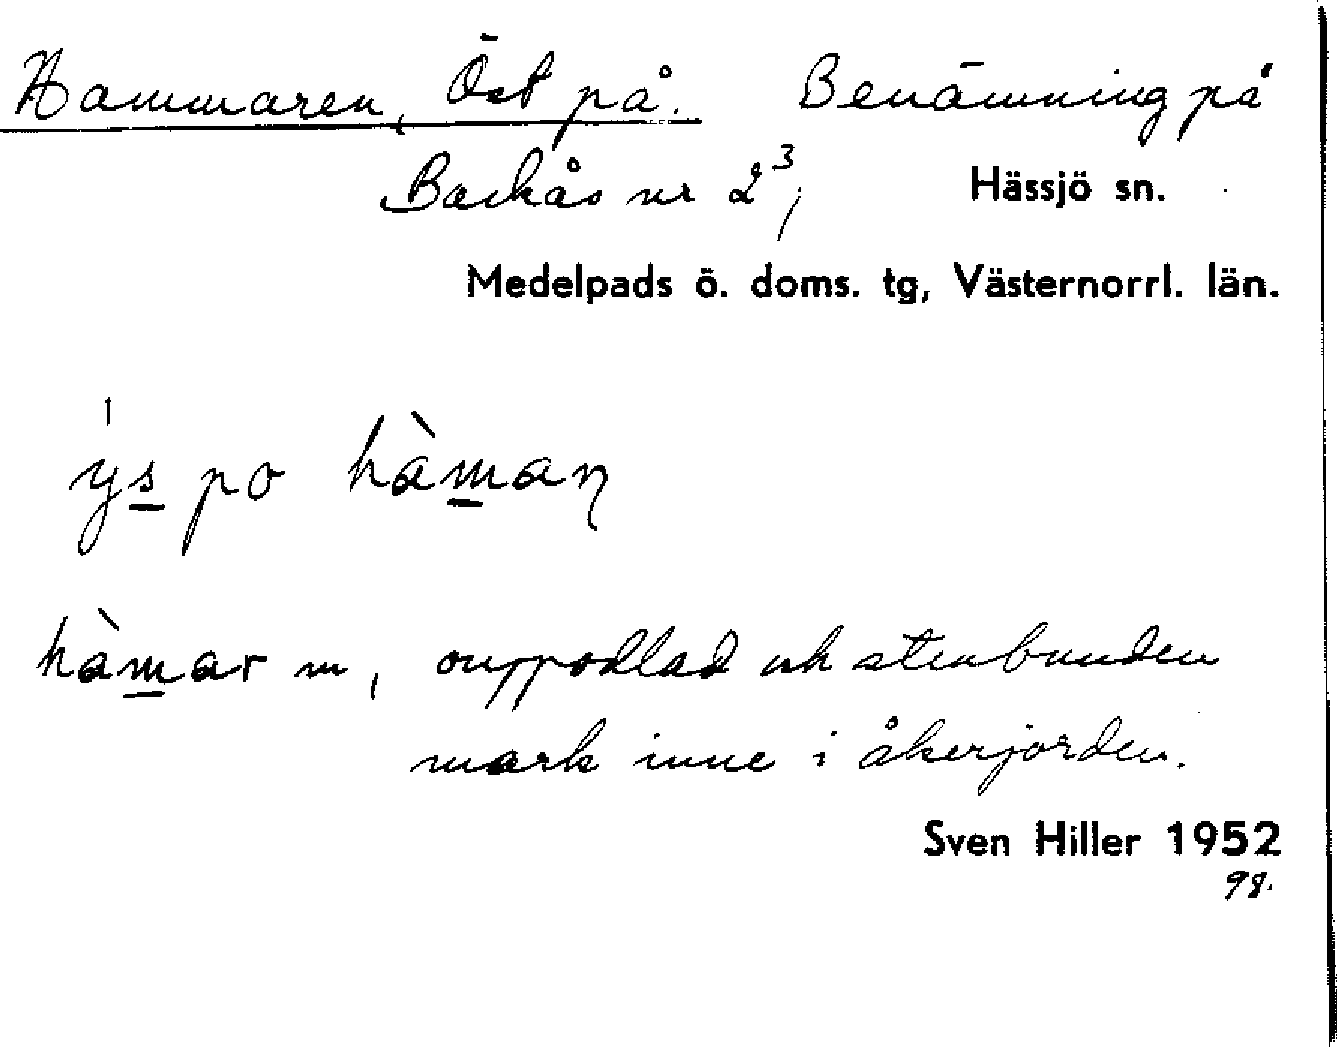 Hammaren, Öst på. Benämning på
Backås nr 2³, Hässjö sn.
Medelpads ö. doms. tg, Västernorrl. län.
ýs̲ po hàm̲aɳ
hàm̲ar m, ouppodlad och stenbunden
mark inne i åkerjorden.
Sven Hiller 1952
98.